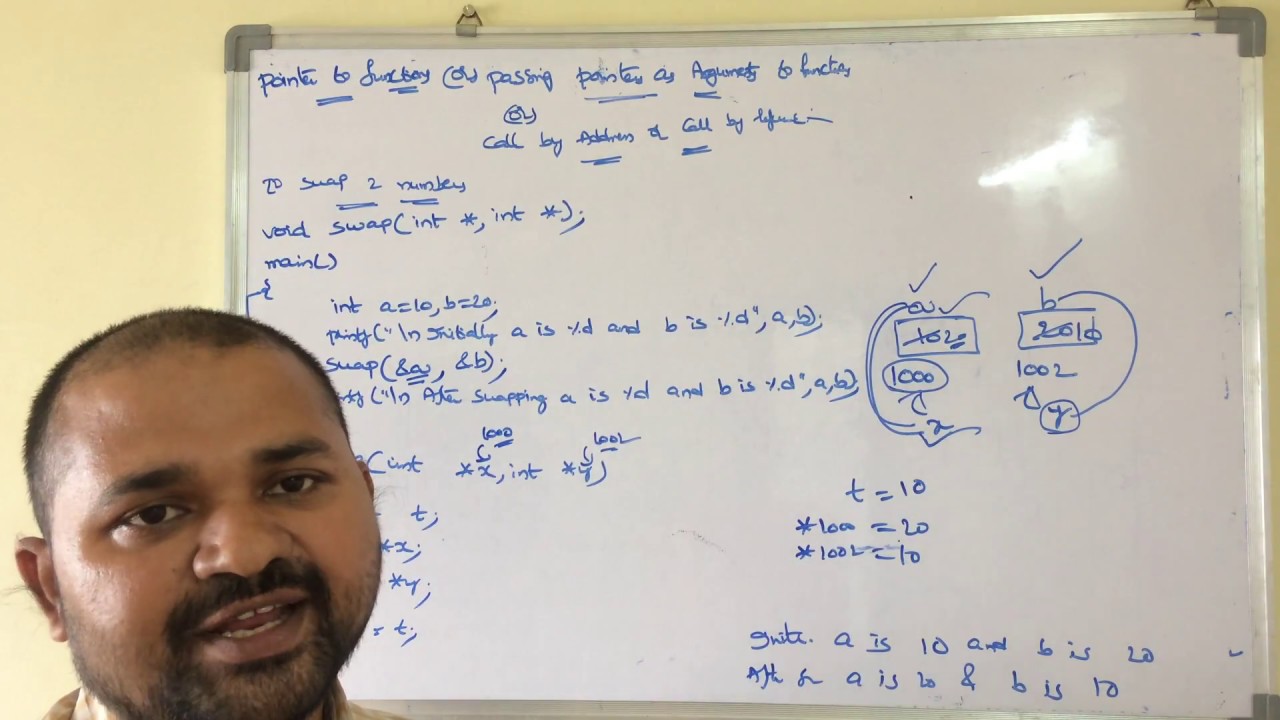 pointer to functions (or) passing pointers as Arguments to function
(or)
Call by Address or Call by
To swap 2 numbers
void swap(int *, int *);
main()
{
int a=10, b=20;
printf("\n Initially a is %d and b is %d", a,b);
swap(&a, &b);
("\n After swapping a is %d and b is %d", a,b);
1000 1002
(int *x, int *y)
t;
*x;
*y;
= t;
a b
10 20 20 10
1000 1002
x y
t = 10
*1000 = 20
*1002 = 10
a is 10 and b is 20
a is 20 & b is 10